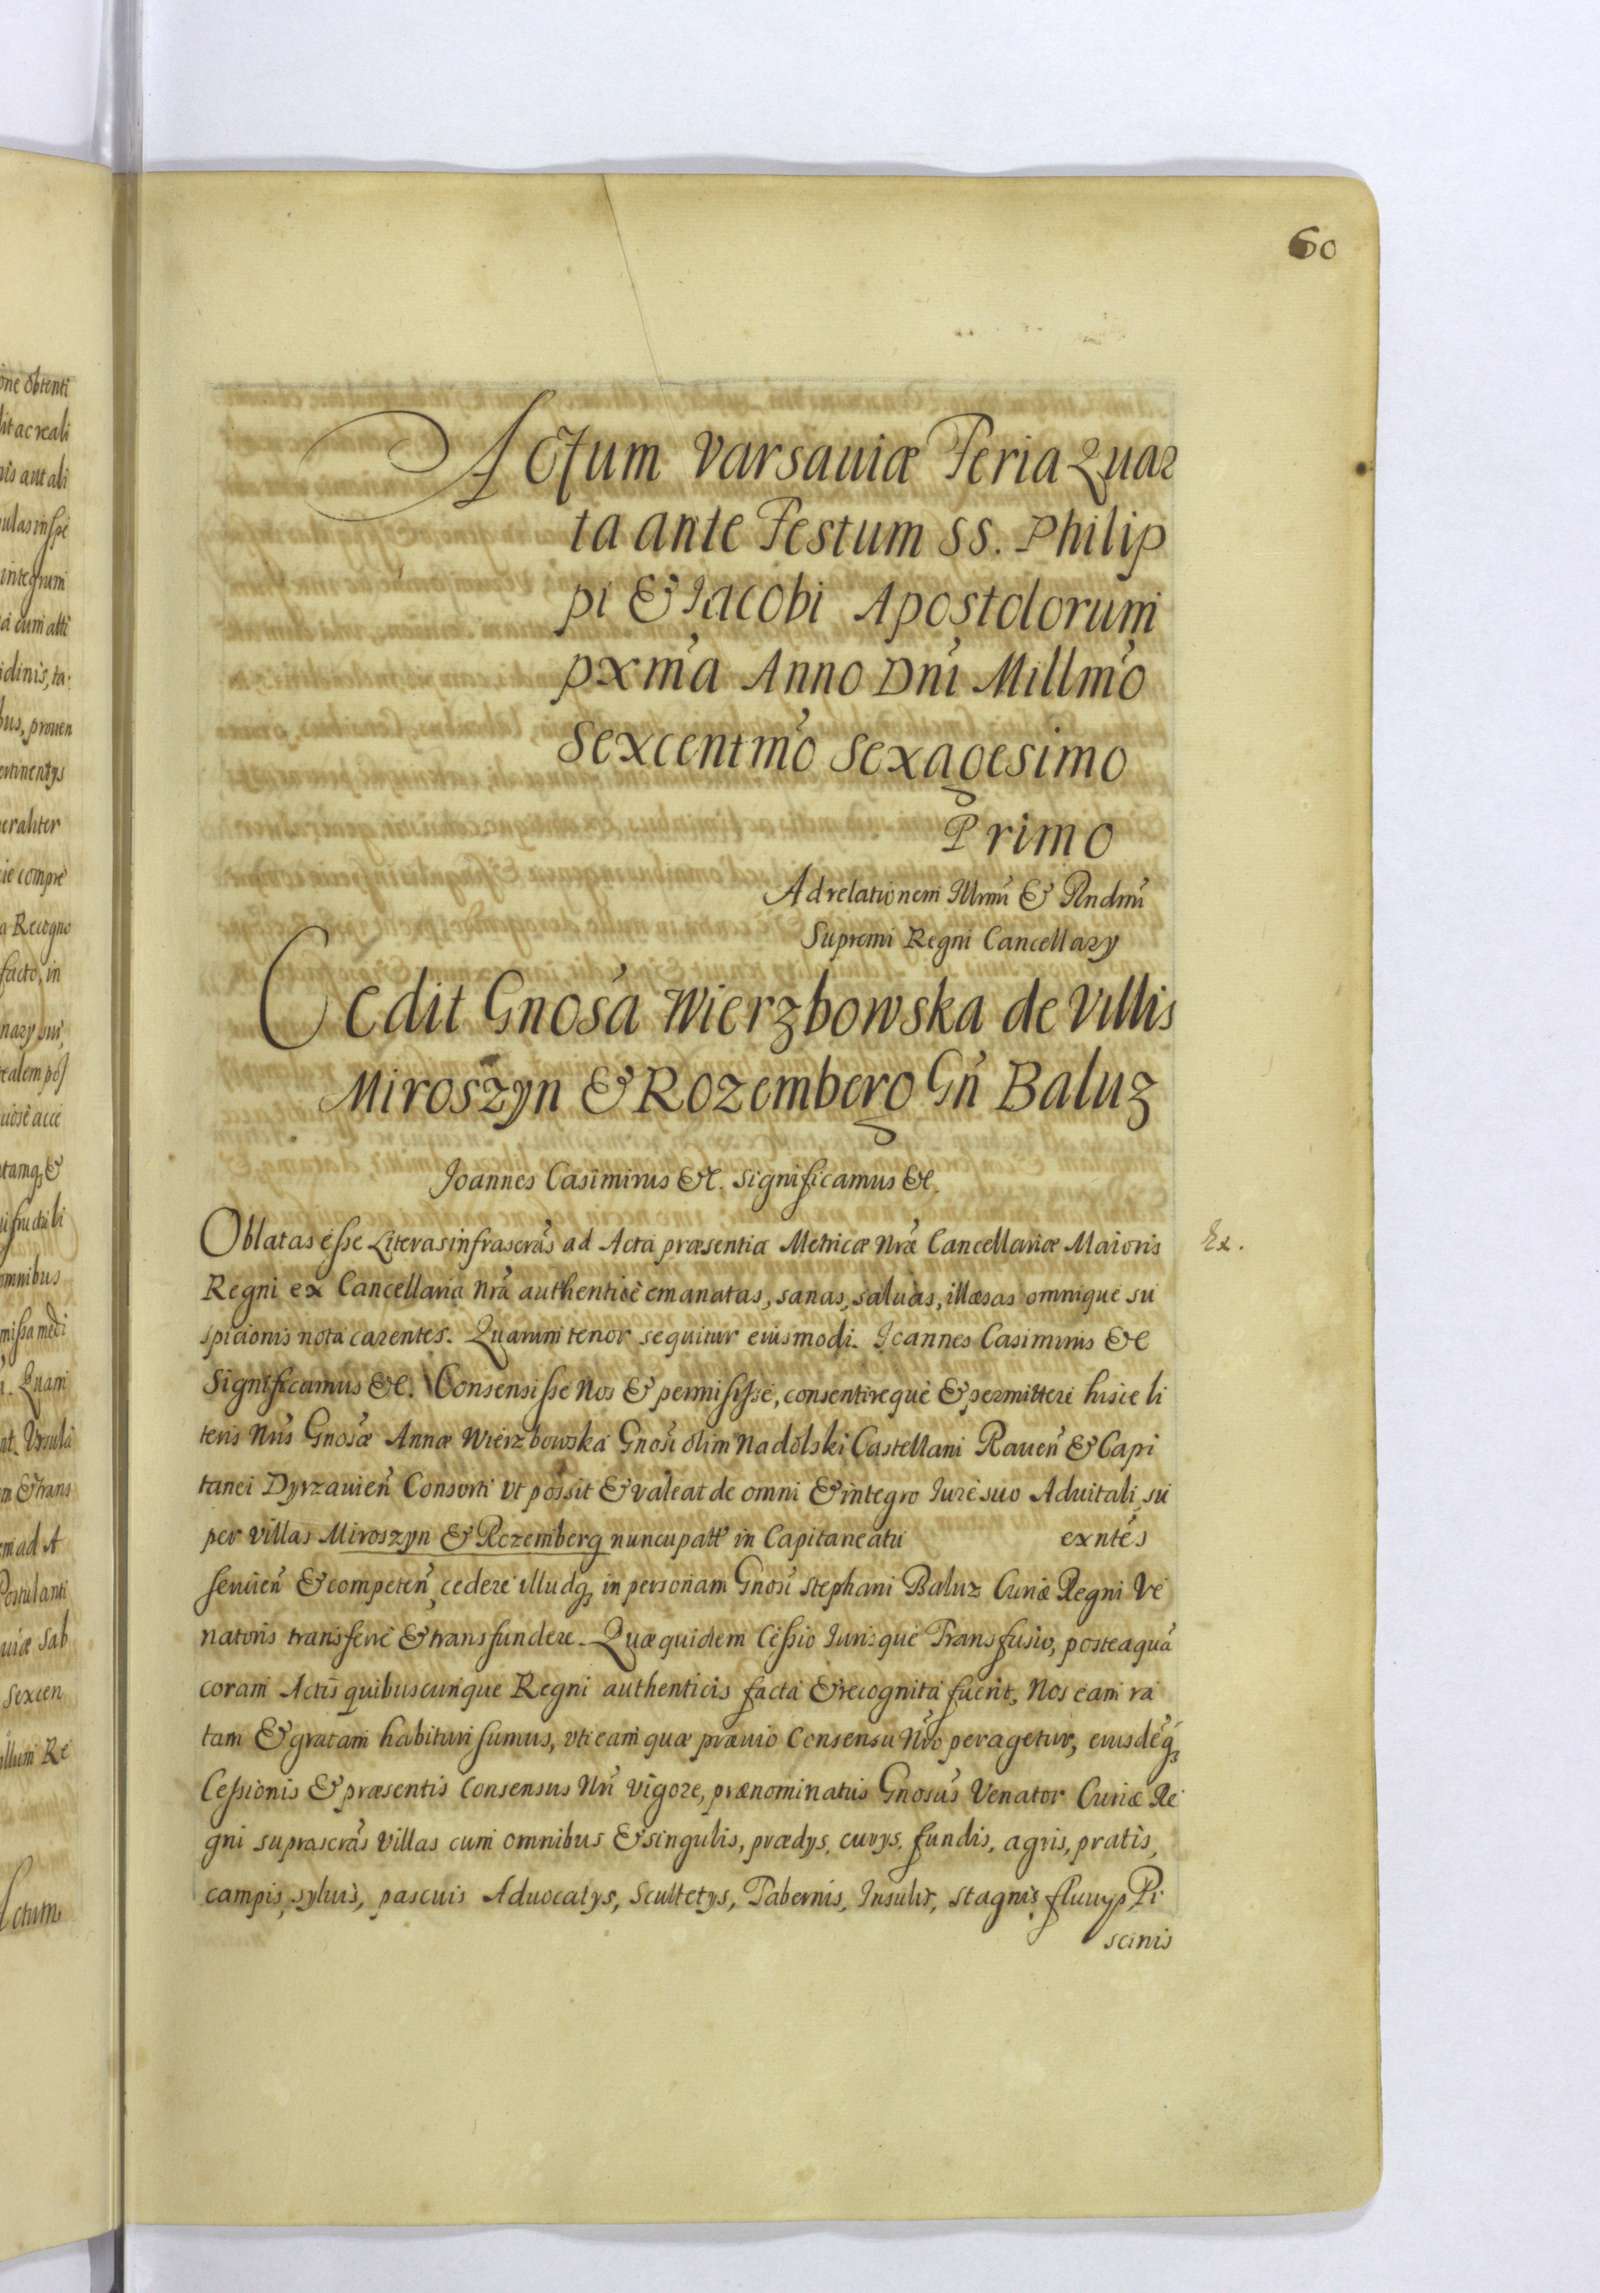 60
Actum Varsauiæ Feria Quar
ta ante Festum SS. Philip
pi & Jacobi Apostolorum
pxm̃a Anno Dnĩ Millm̃o
Sexcentm̃o Sexagesimo
Primo
Ad relationem Illrmĩ & Rndmĩ
Supremi Regni Cancellarÿ
Cedit Gnosã Wierzbowska de Villis
Miroszyn & Rozemberg Gñ Baluz
Joannes Casimirus &c. Significamus &c.
Oblatas esse Literas infrascrãs ad Acta præsentia Metricæ Nrãe Cancellariæ Maioris
Ex.
Regni ex Cancellaria Nrã authenticè emanatas, sanas, saluas, illæsas omnique su
spicionis nota carentes. Quarum tenor sequitur eiusmodi. Joannes Casimirus &c
Significamus &c. Consensisse Nos & permisisse, consentireque & permittere hisce li
teris Nrĩs Gnosæ Annæ Wierzbowska Gnosĩ olim Nadolski Castellani Raueñ & Capi
tanei Dyrzauieñ Consorti Vt possit & valeat de omni & integro Iure suo Aduitali su
per villas Miroszyn & Rozemberg nuncupatt̃ in Capitaneatu exntẽs
seruieñ & competeñ, cedere illudq3 in personam Gnosĩ Stephani Baluz Curiæ Regni Ve
natoris transferre & transfundere. Quæ quidem Cessio Iurisque Transfusio, posteaquã
coram Actis quibuscunque Regni authenticis facta & recognita fuerit, Nos eam ra
tam & gratam habituri sumus, vti eam quæ præuio Consensu Nrõ peragetur, eiusdẽq3
Cessionis & præsentis Consensus Nrĩ vigore, prænominatus Gnosũs Venator Curiæ Re
gni suprascrãs villas cum omnibus & singulis, prædÿs, curÿs, fundis, agris, pratis,
campis, syluis, pascuis Aduocatÿs, Scultetÿs, Tabernis, Insulis, stagnis, fluuÿs Pi
scinis